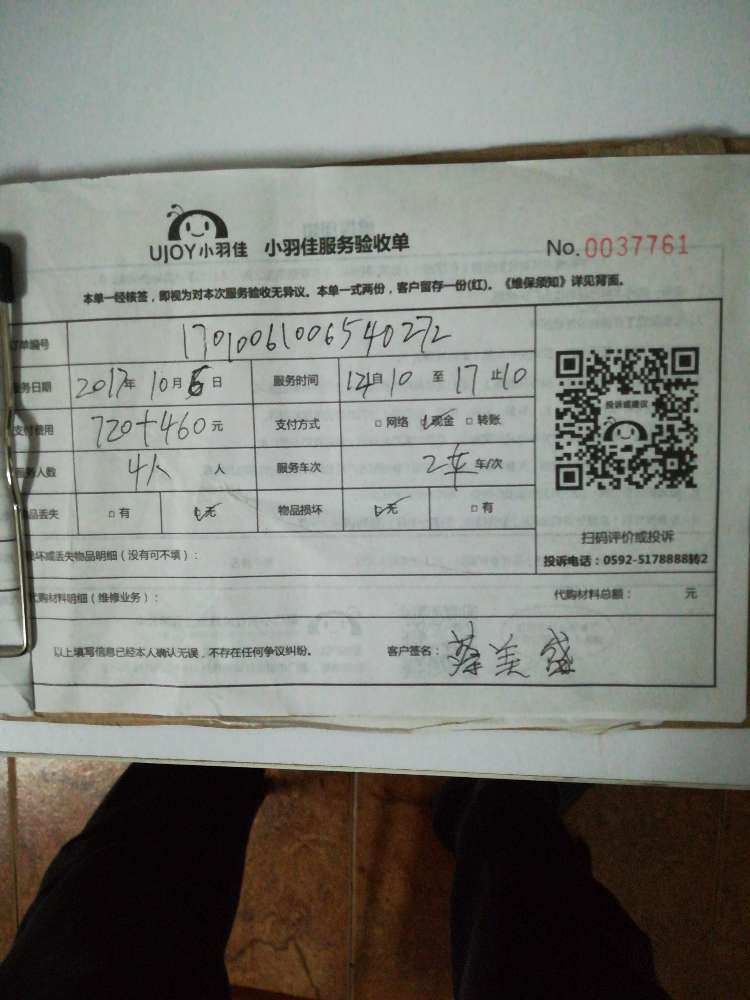 UJOY小羽佳 小羽佳服务验收单 No.0037761
本单一经核签，即视为对本次服务验收无异议。本单一式两份，客户留存一份(红)。《维保须知》详见背面。
订单编号 17010061006540272
服务日期 2017年 10月6日 服务时间 14自10 至 17止10
支付费用 720+460元 支付方式 □网络 ☑现金 □转账
服务人数 4人 人 服务车次 2车 车/次
物品丢失 □有 ☑无 物品损坏 ☑无 □有
投诉或建议
扫码评价或投诉
投诉电话：0592-5178888转2
损坏或丢失物品明细（没有可不填）：
代购材料明细（维修业务）： 代购材料总额： 元
以上填写信息已经本人确认无误，不存在任何争议纠纷。 客户签名：蔡美盛